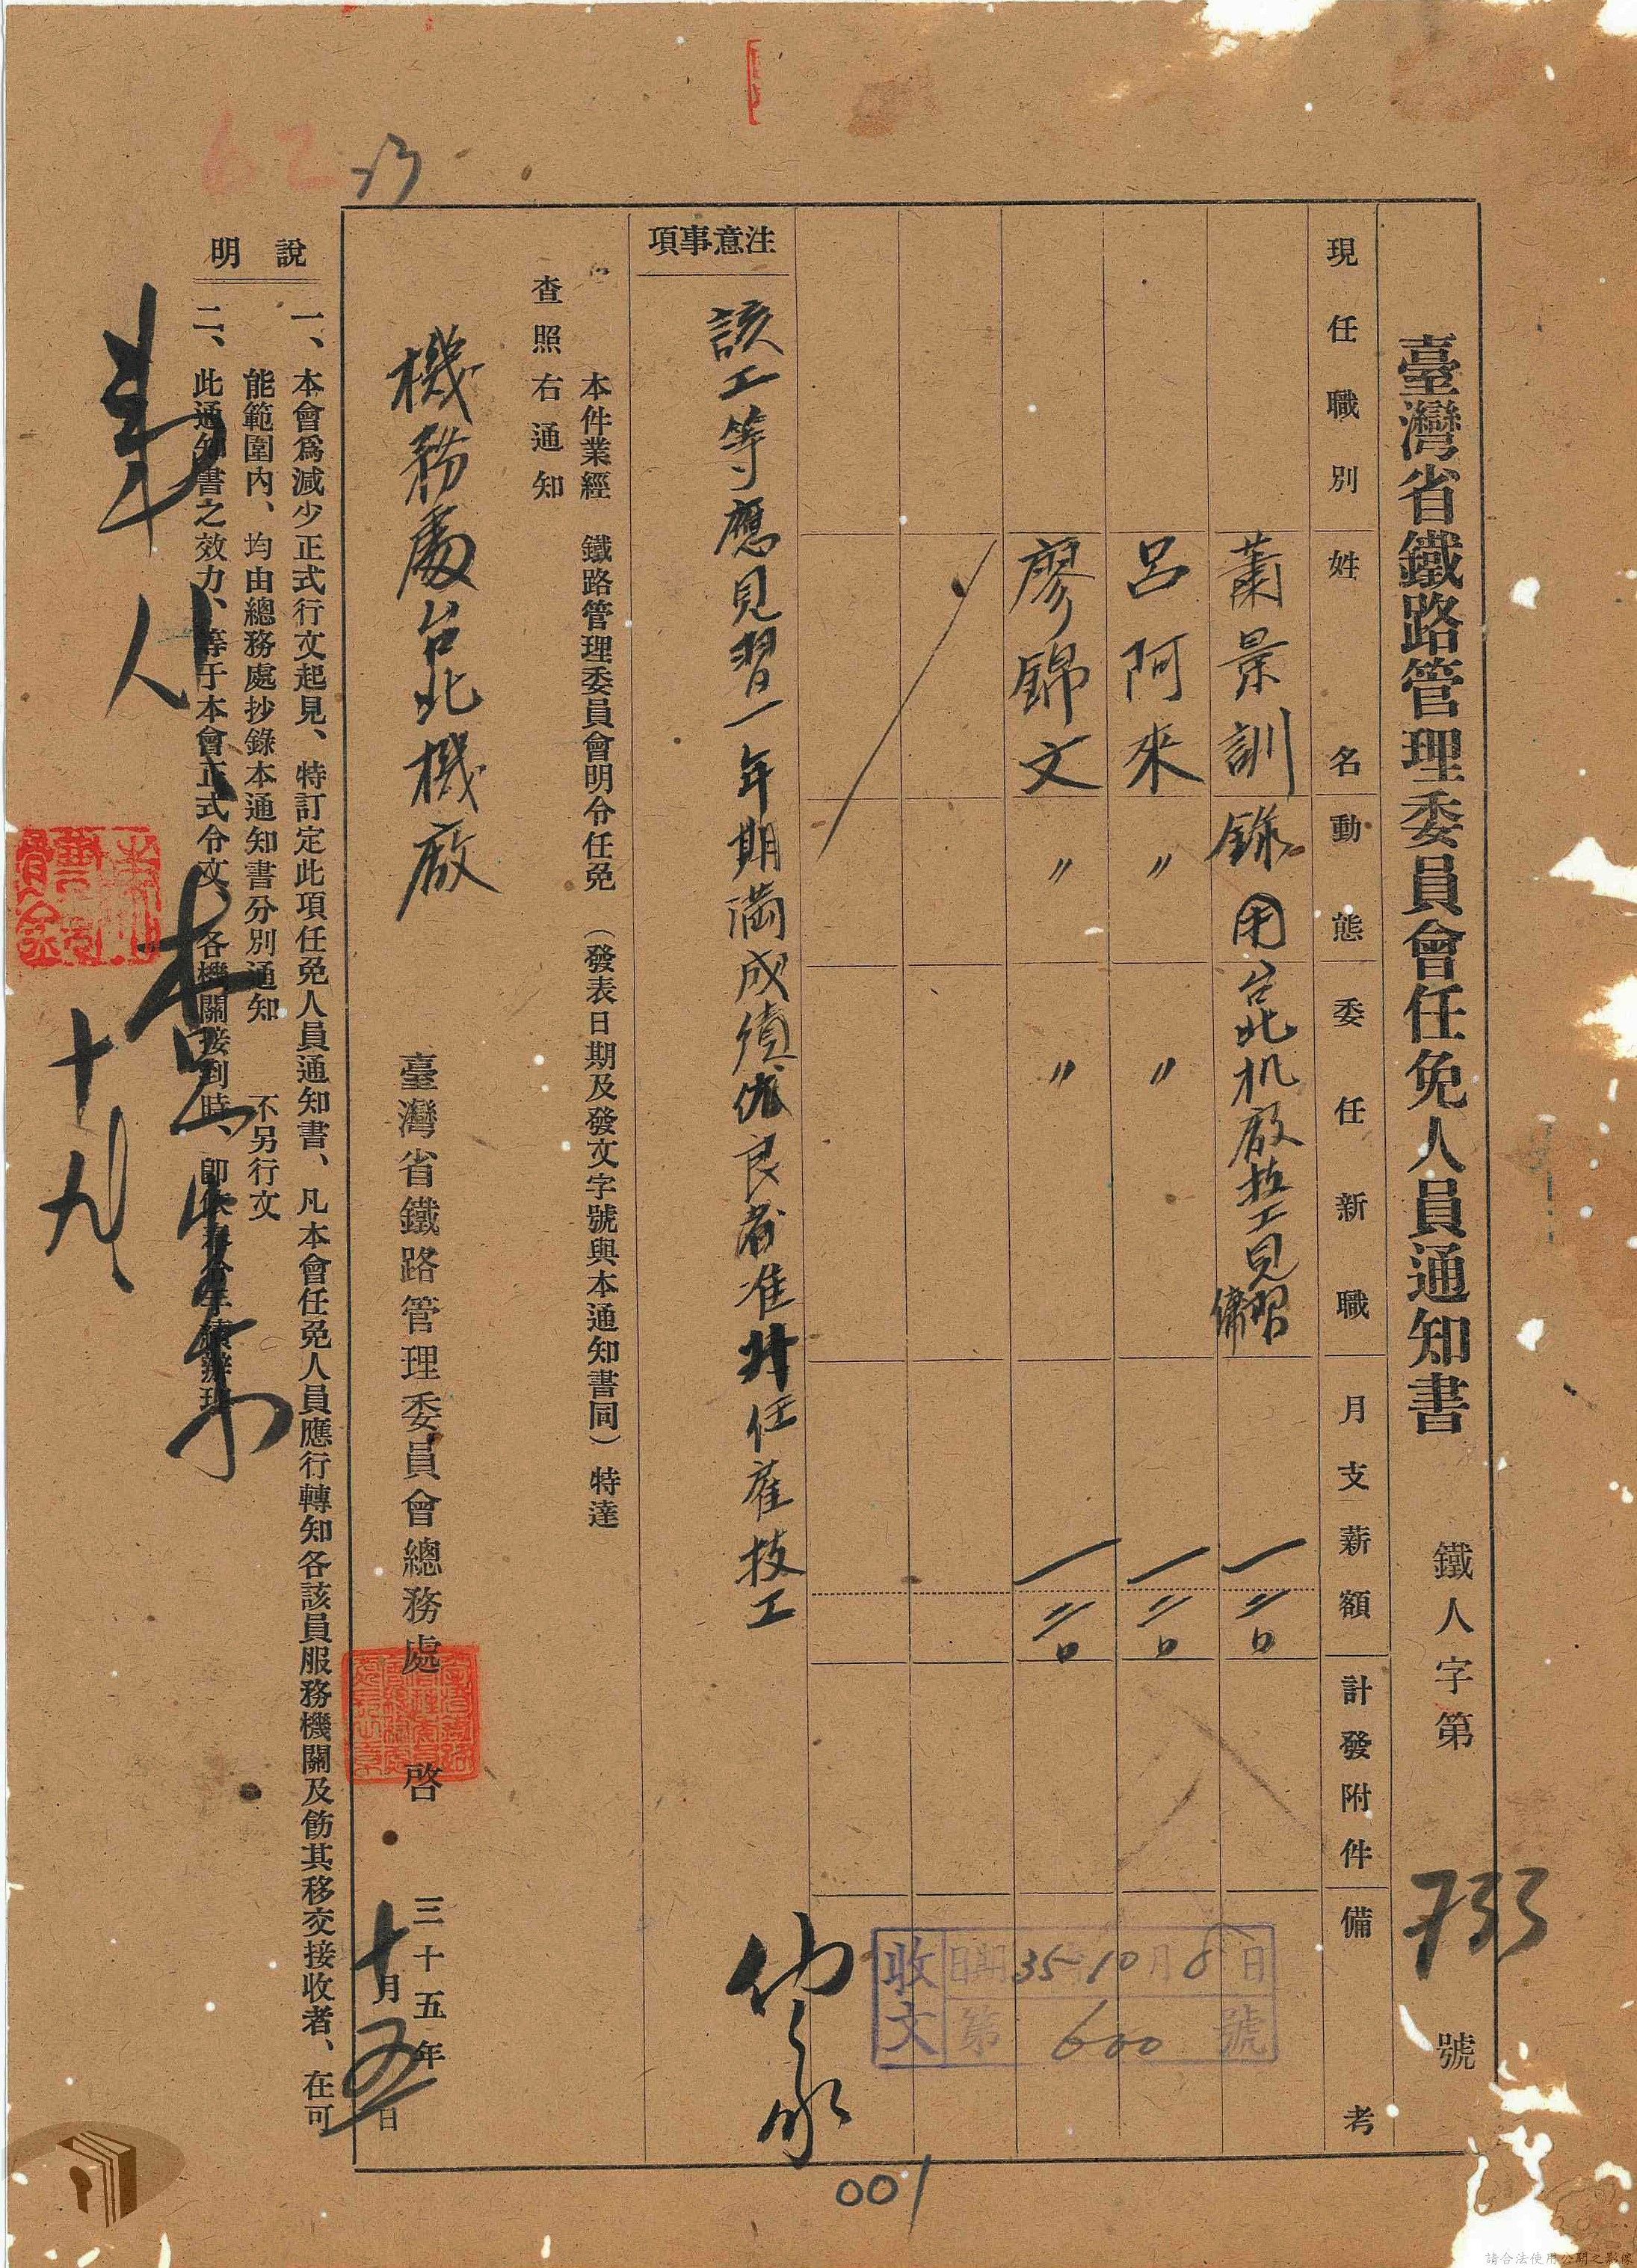 臺灣省鐵路管理委員會任免人員通知書 鐵人字第 733 號
現任職別 姓名 動態 委任新職 月支薪額 計發附件 備考
蕭景訓 錄用 台北机廠技工見習
呂阿來 〃 〃
廖錦文 〃 〃
收文 日期 35 10月8日
第 600 號
注意事項
該工等應見習一年期滿成績優良者准升任雇技工
本件業經 鐵路管理委員會明令任免 (發表日期及發文字號與本通知書同) 特達
查照右通知
機務處台北機廠
臺灣省鐵路管理委員會總務處 啓
三十五年
十月五日
說明
一、本會爲減少正式行文起見、特訂定此項任免人員通知書、凡本會任免人員應行轉知各該員服務機關及飭其移交接收者、在可
能範圍內、均由總務處抄錄本通知書分別通知 不另行文
二、此通知書之效力、等于本會正式令文、各機關接到時、卽
十九
62
001
請合法使用公開之影像